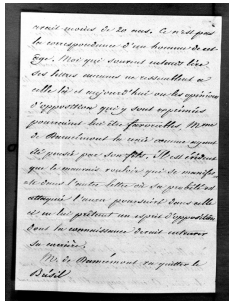 avait moins de 20 ans. Ce n'est pas
la correspondance d'un homme de cet
âge. Moi qui souvent entends lire
ses lettres aucune ne ressemblent à
celle là et aujourd'hui ou les opinions
d'opposition qui y sont exprimées
pourraient lui être favorables, M.me
de la voie comme ayant
été par son fils. Il est évident
que le mauvais vouloir qui se manifeste
dans l'autre lettre où sa probité est
attaquée l'aura poursuivi dans celle
ci, en lui prêtant un esprit d'opposition
dont la connaissance devait entraver
sa carrière.
M. de va quitter le
Brésil